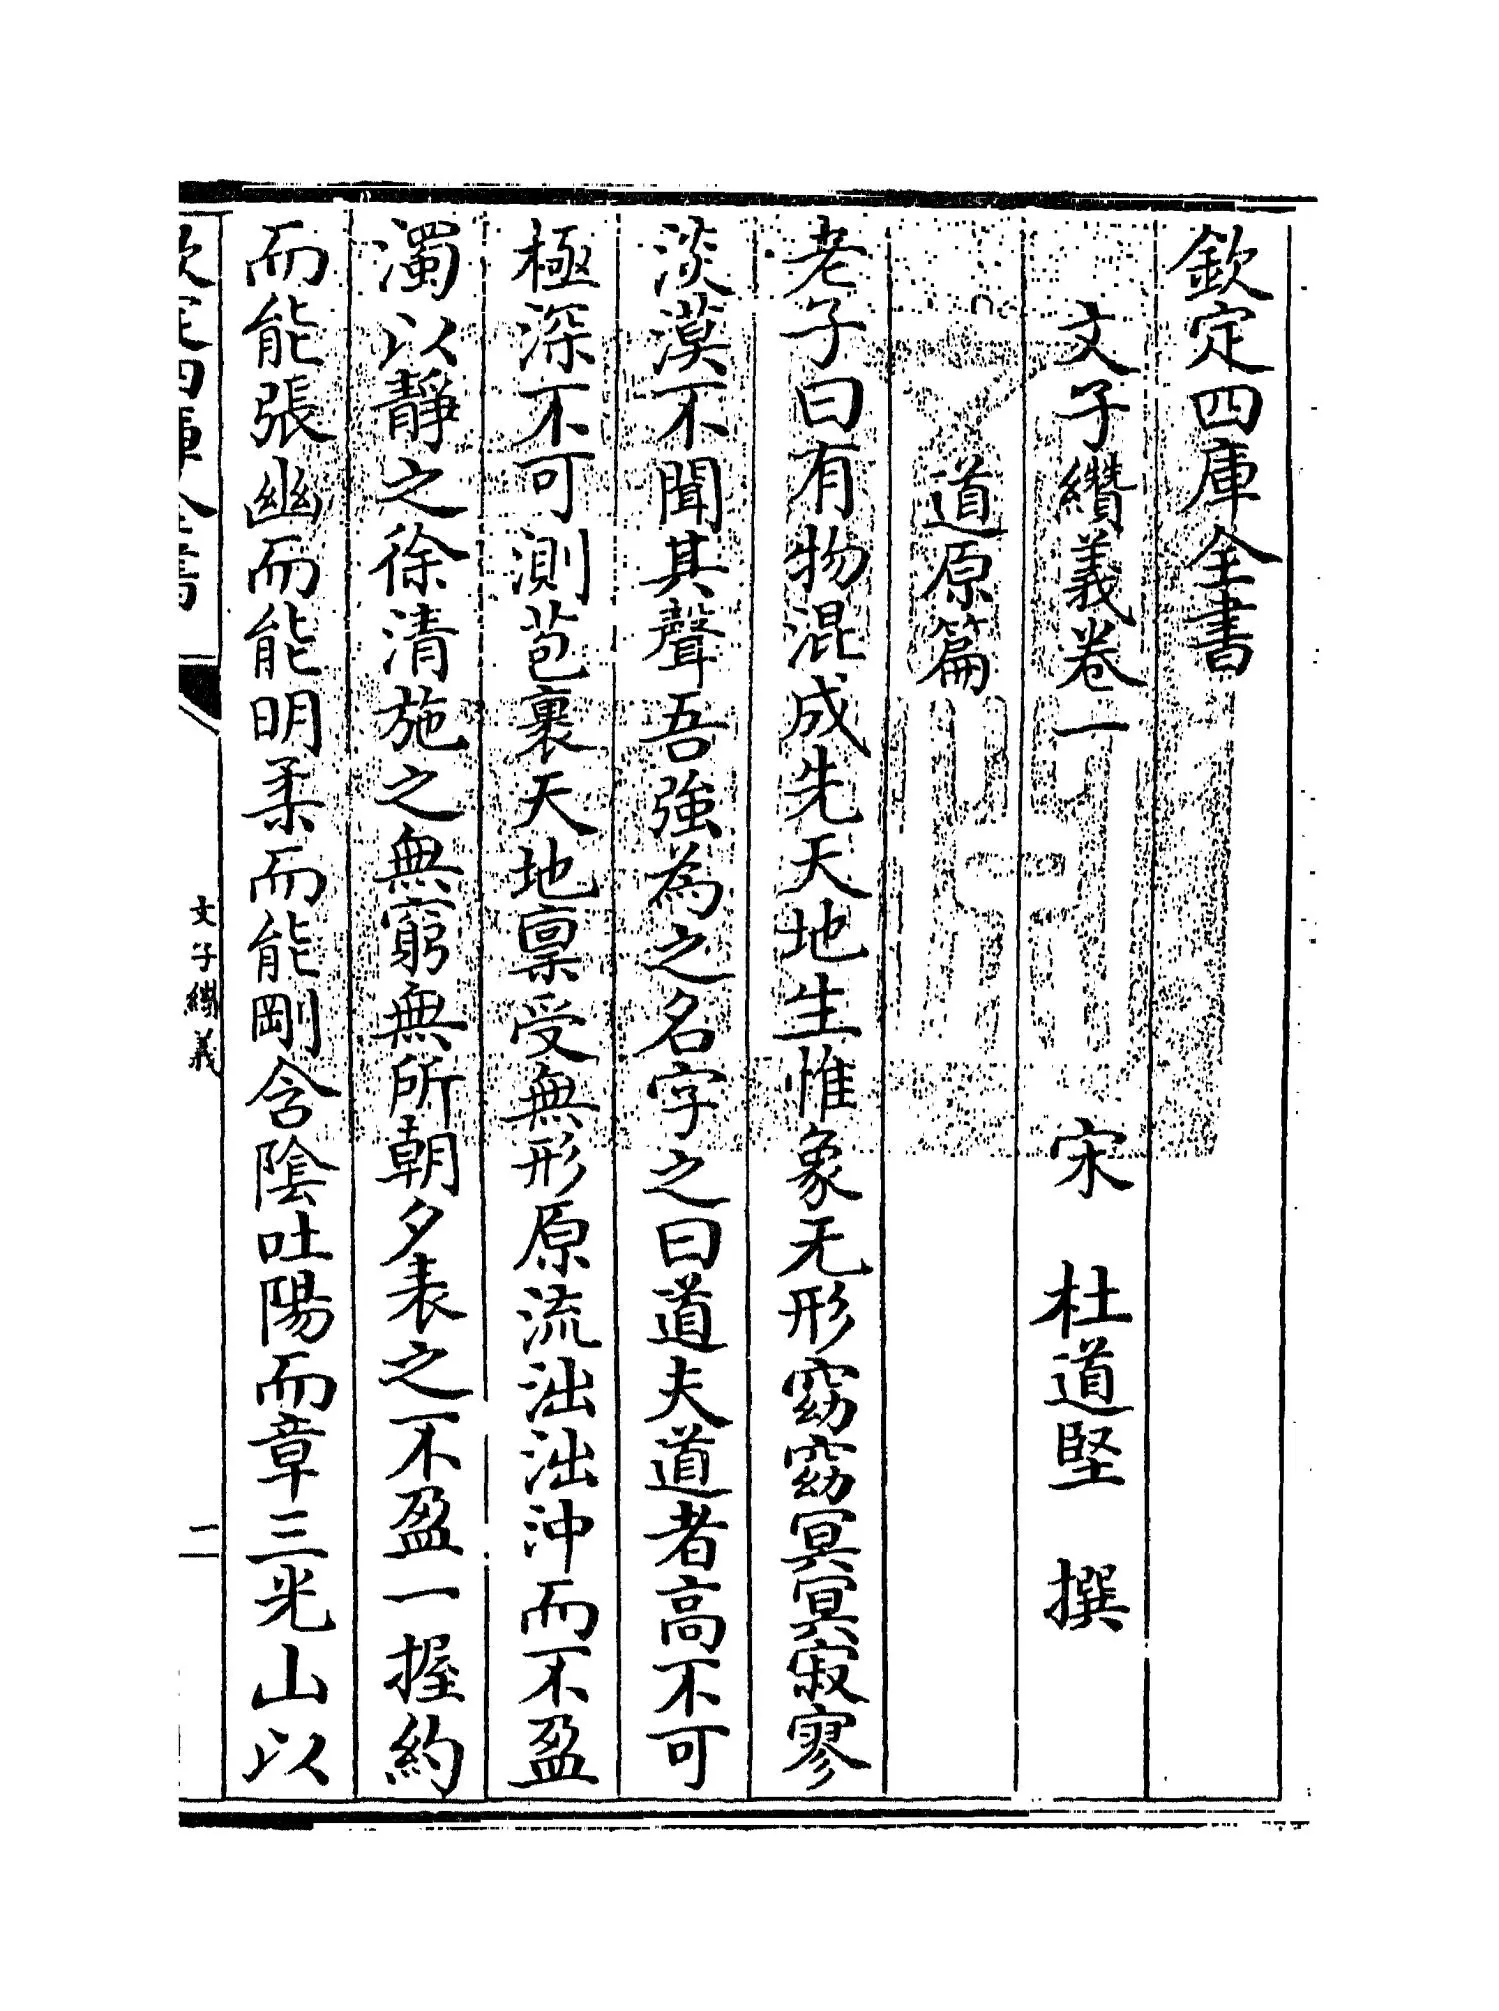 欽定四庫全書
文子纘義卷一
宋 杜道堅 撰
道原篇
老子曰有物混成先天地生惟象无形窈窈冥冥寂寥
淡漠不聞其聲吾強為之名字之曰道夫道者高不可
極深不可測苞裹天地稟受無形原流泏泏沖而不盈
濁以靜之徐清施之無窮無所朝夕表之不盈一握約
而能張幽而能明柔而能剛含陰吐陽而章三光山以
欽定四庫全書
文子纘義
一